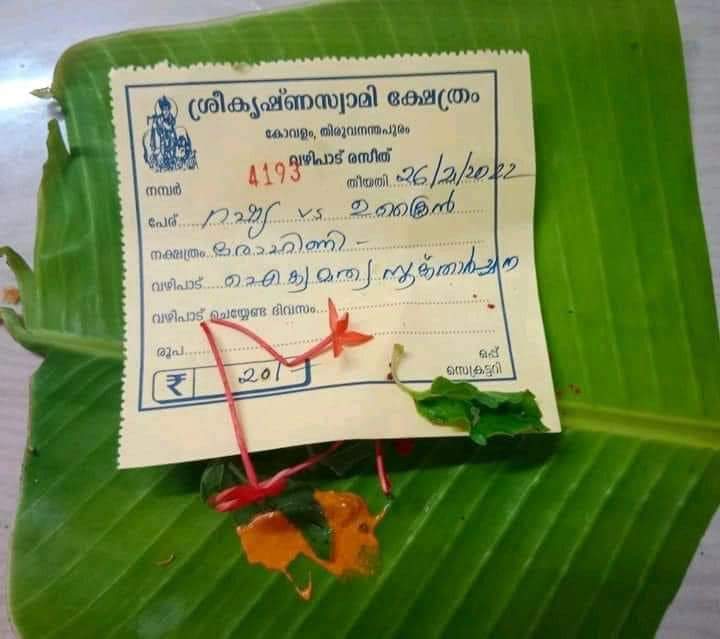 ശ്രീകൃഷ്ണസ്വാമി ക്ഷേത്രം
കോവളം, തിരുവനന്തപുരം
വഴിപാട് രസീത്
നമ്പർ 4193 തീയതി 26/2/2022
പേര് റഷ്യ vs ഉക്രൈൻ
നക്ഷത്രം രോഹിണി -
വഴിപാട് ഐക്യമത്യ സൂക്താർച്ചന
വഴിപാട് ചെയ്യേണ്ട ദിവസം
രൂപ ഒപ്പ്
₹ 20/- സെക്രട്ടറി